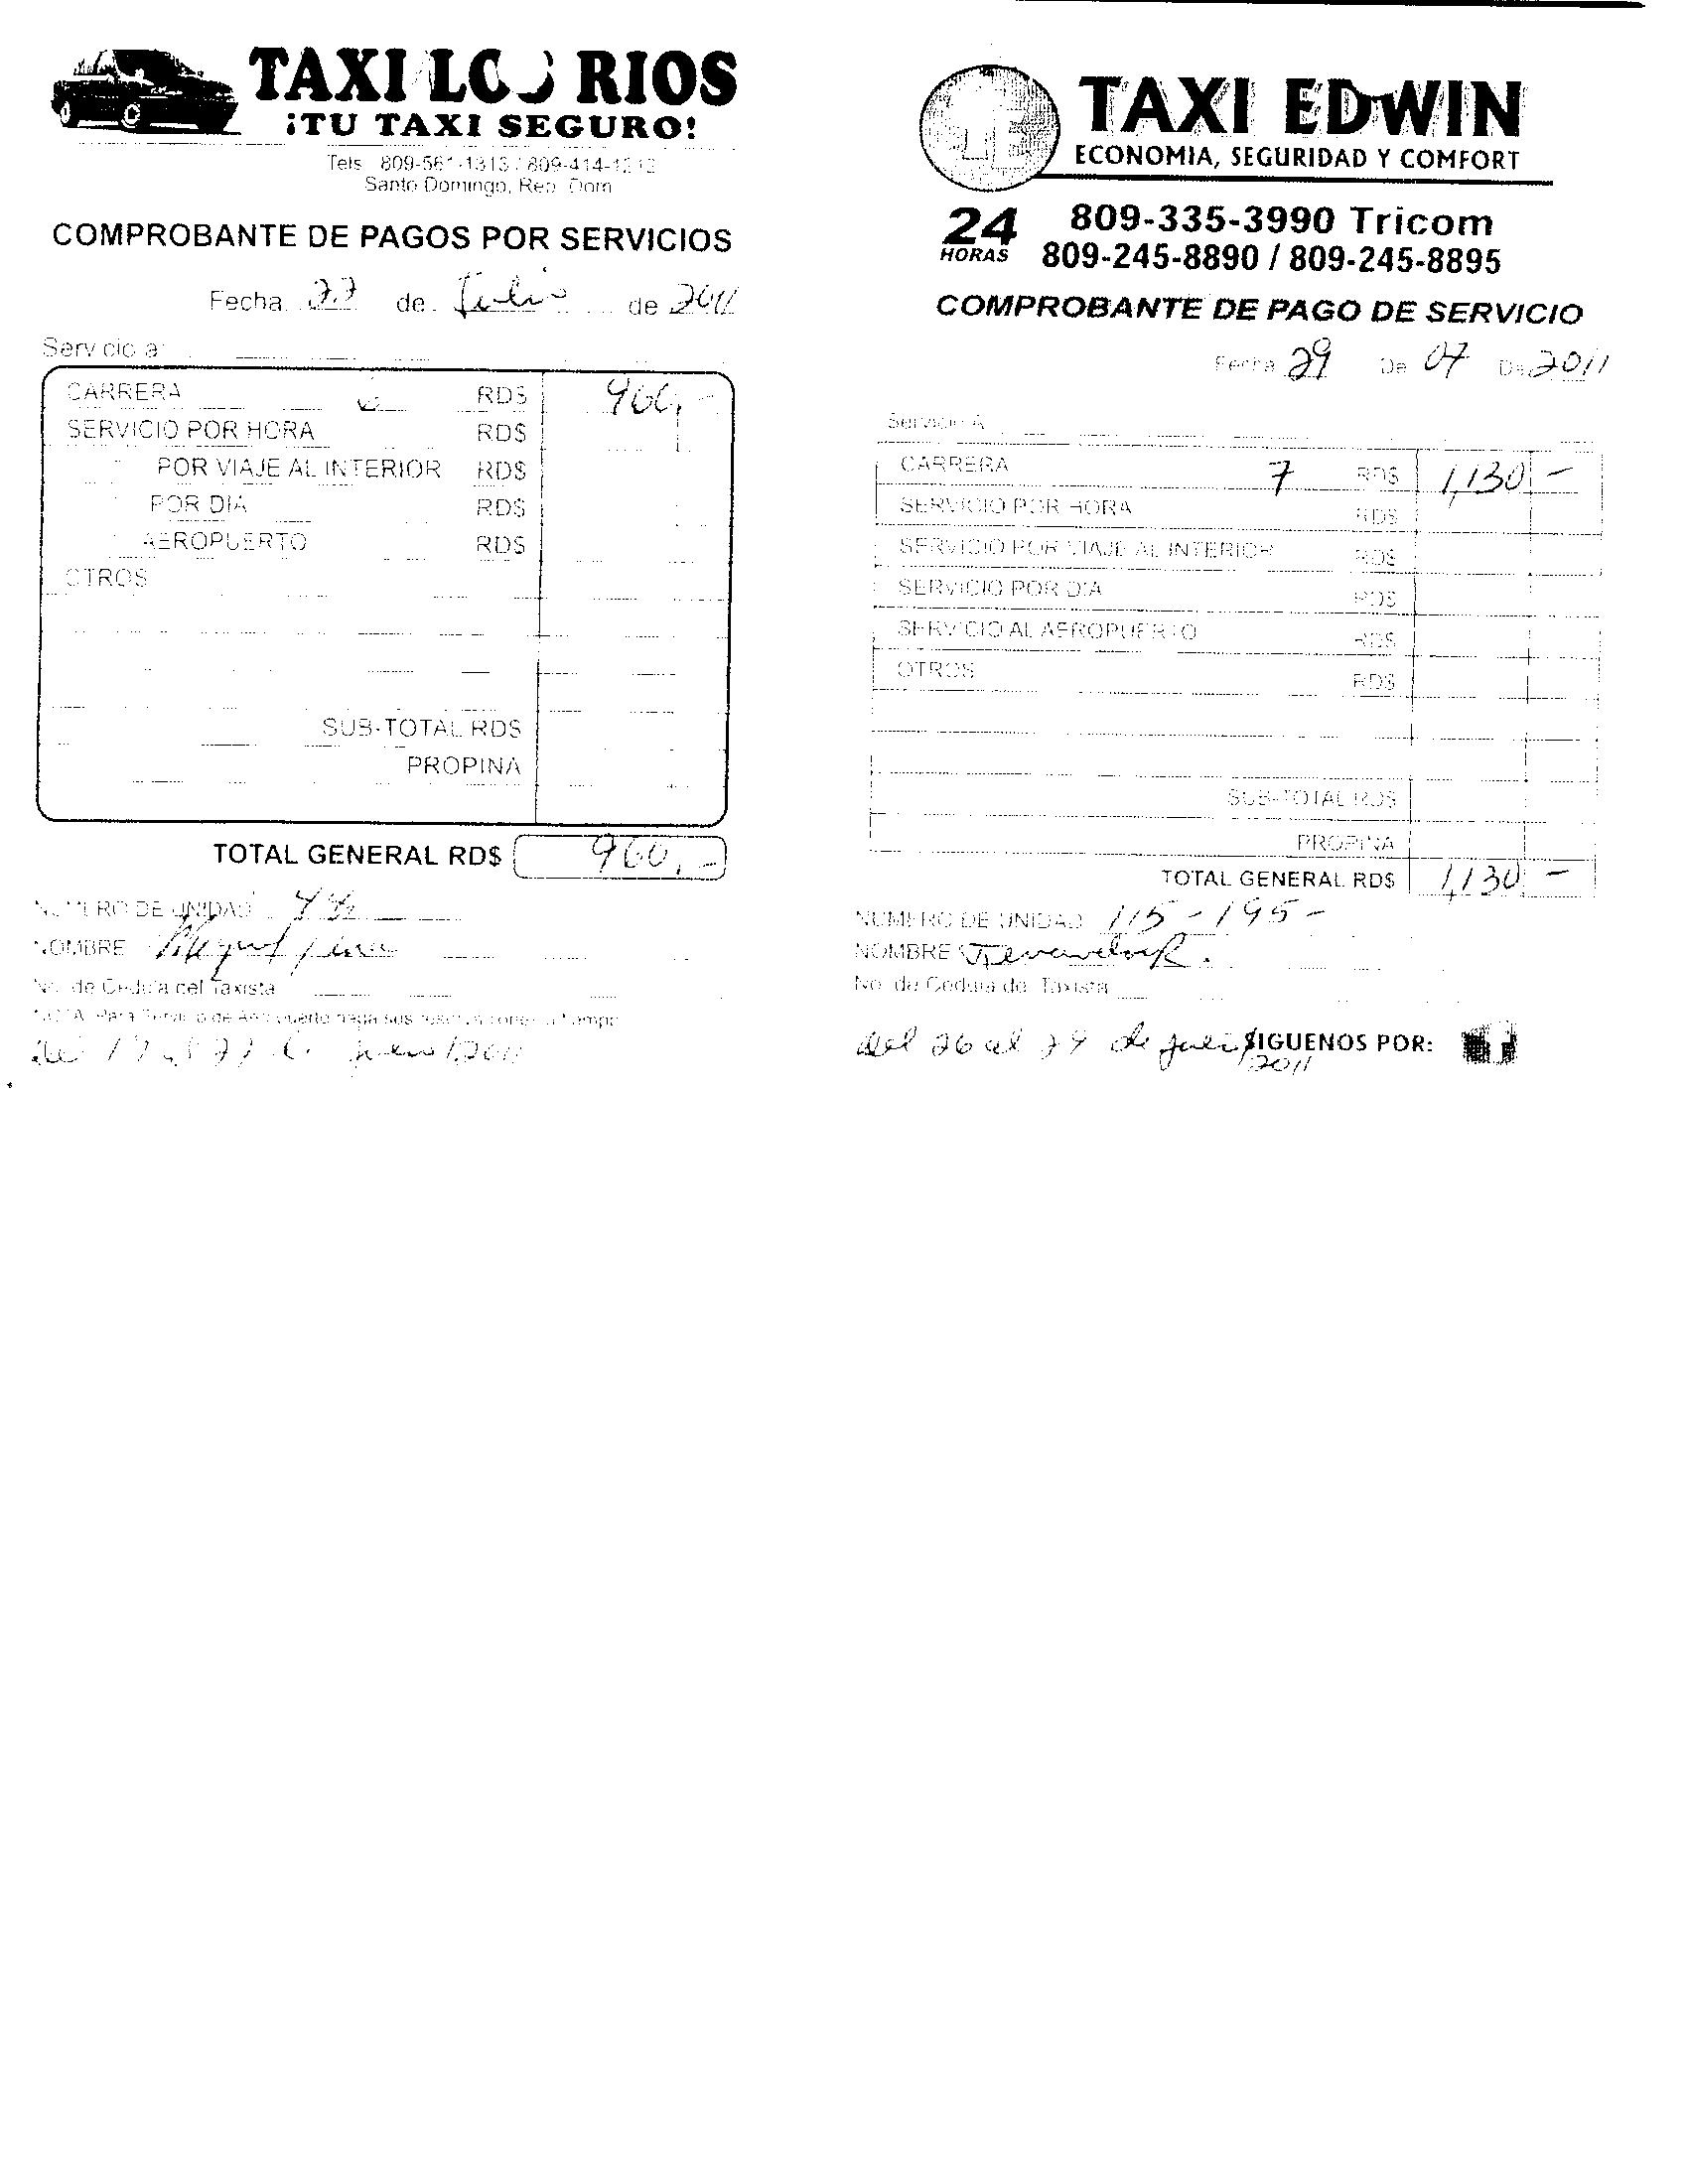 TAXI RIOS
¡TU TAXI SEGURO!
Tels 809-561-1313 / 809-414-1212
Santo Domingo, Rep. Dom.
COMPROBANTE DE PAGOS POR SERVICIOS
Fecha de Julio de 2011
Servicio a:
CARRERA 6 RD$ 960,-
SERVICIO POR HORA RD$
POR VIAJE AL INTERIOR RD$
POR DIA RD$
AEROPUERTO RD$
OTROS
SUB-TOTAL RD$
PROPINA
TOTAL GENERAL RD$ 960,-
NUMERO DE UNIDAD
NOMBRE Miguel
No. de Cedula del Taxista
NOTA: Para Servicio de Aeropuerto haga sus con
del julio/2011
TAXI EDWIN
ECONOMIA, SEGURIDAD Y COMFORT
24 HORAS
809-335-3990 Tricom
809-245-8890 / 809-245-8895
COMPROBANTE DE PAGO DE SERVICIO
Fecha 29 De 07 De 2011
Servicio A
CARRERA 7 RD$ 1,130 -
SERVICIO POR HORA RD$
SERVICIO POR VIAJE AL INTERIOR RD$
SERVICIO POR DIA RD$
SERVICIO AL AEROPUERTO RD$
OTROS RD$
SUB-TOTAL RD$
PROPINA
TOTAL GENERAL RD$ 1,130 -
NUMERO DE UNIDAD 115-195-
NOMBRE
No. de Cedula del Taxista
del 26 al 29 de julio/2011
SIGUENOS POR: